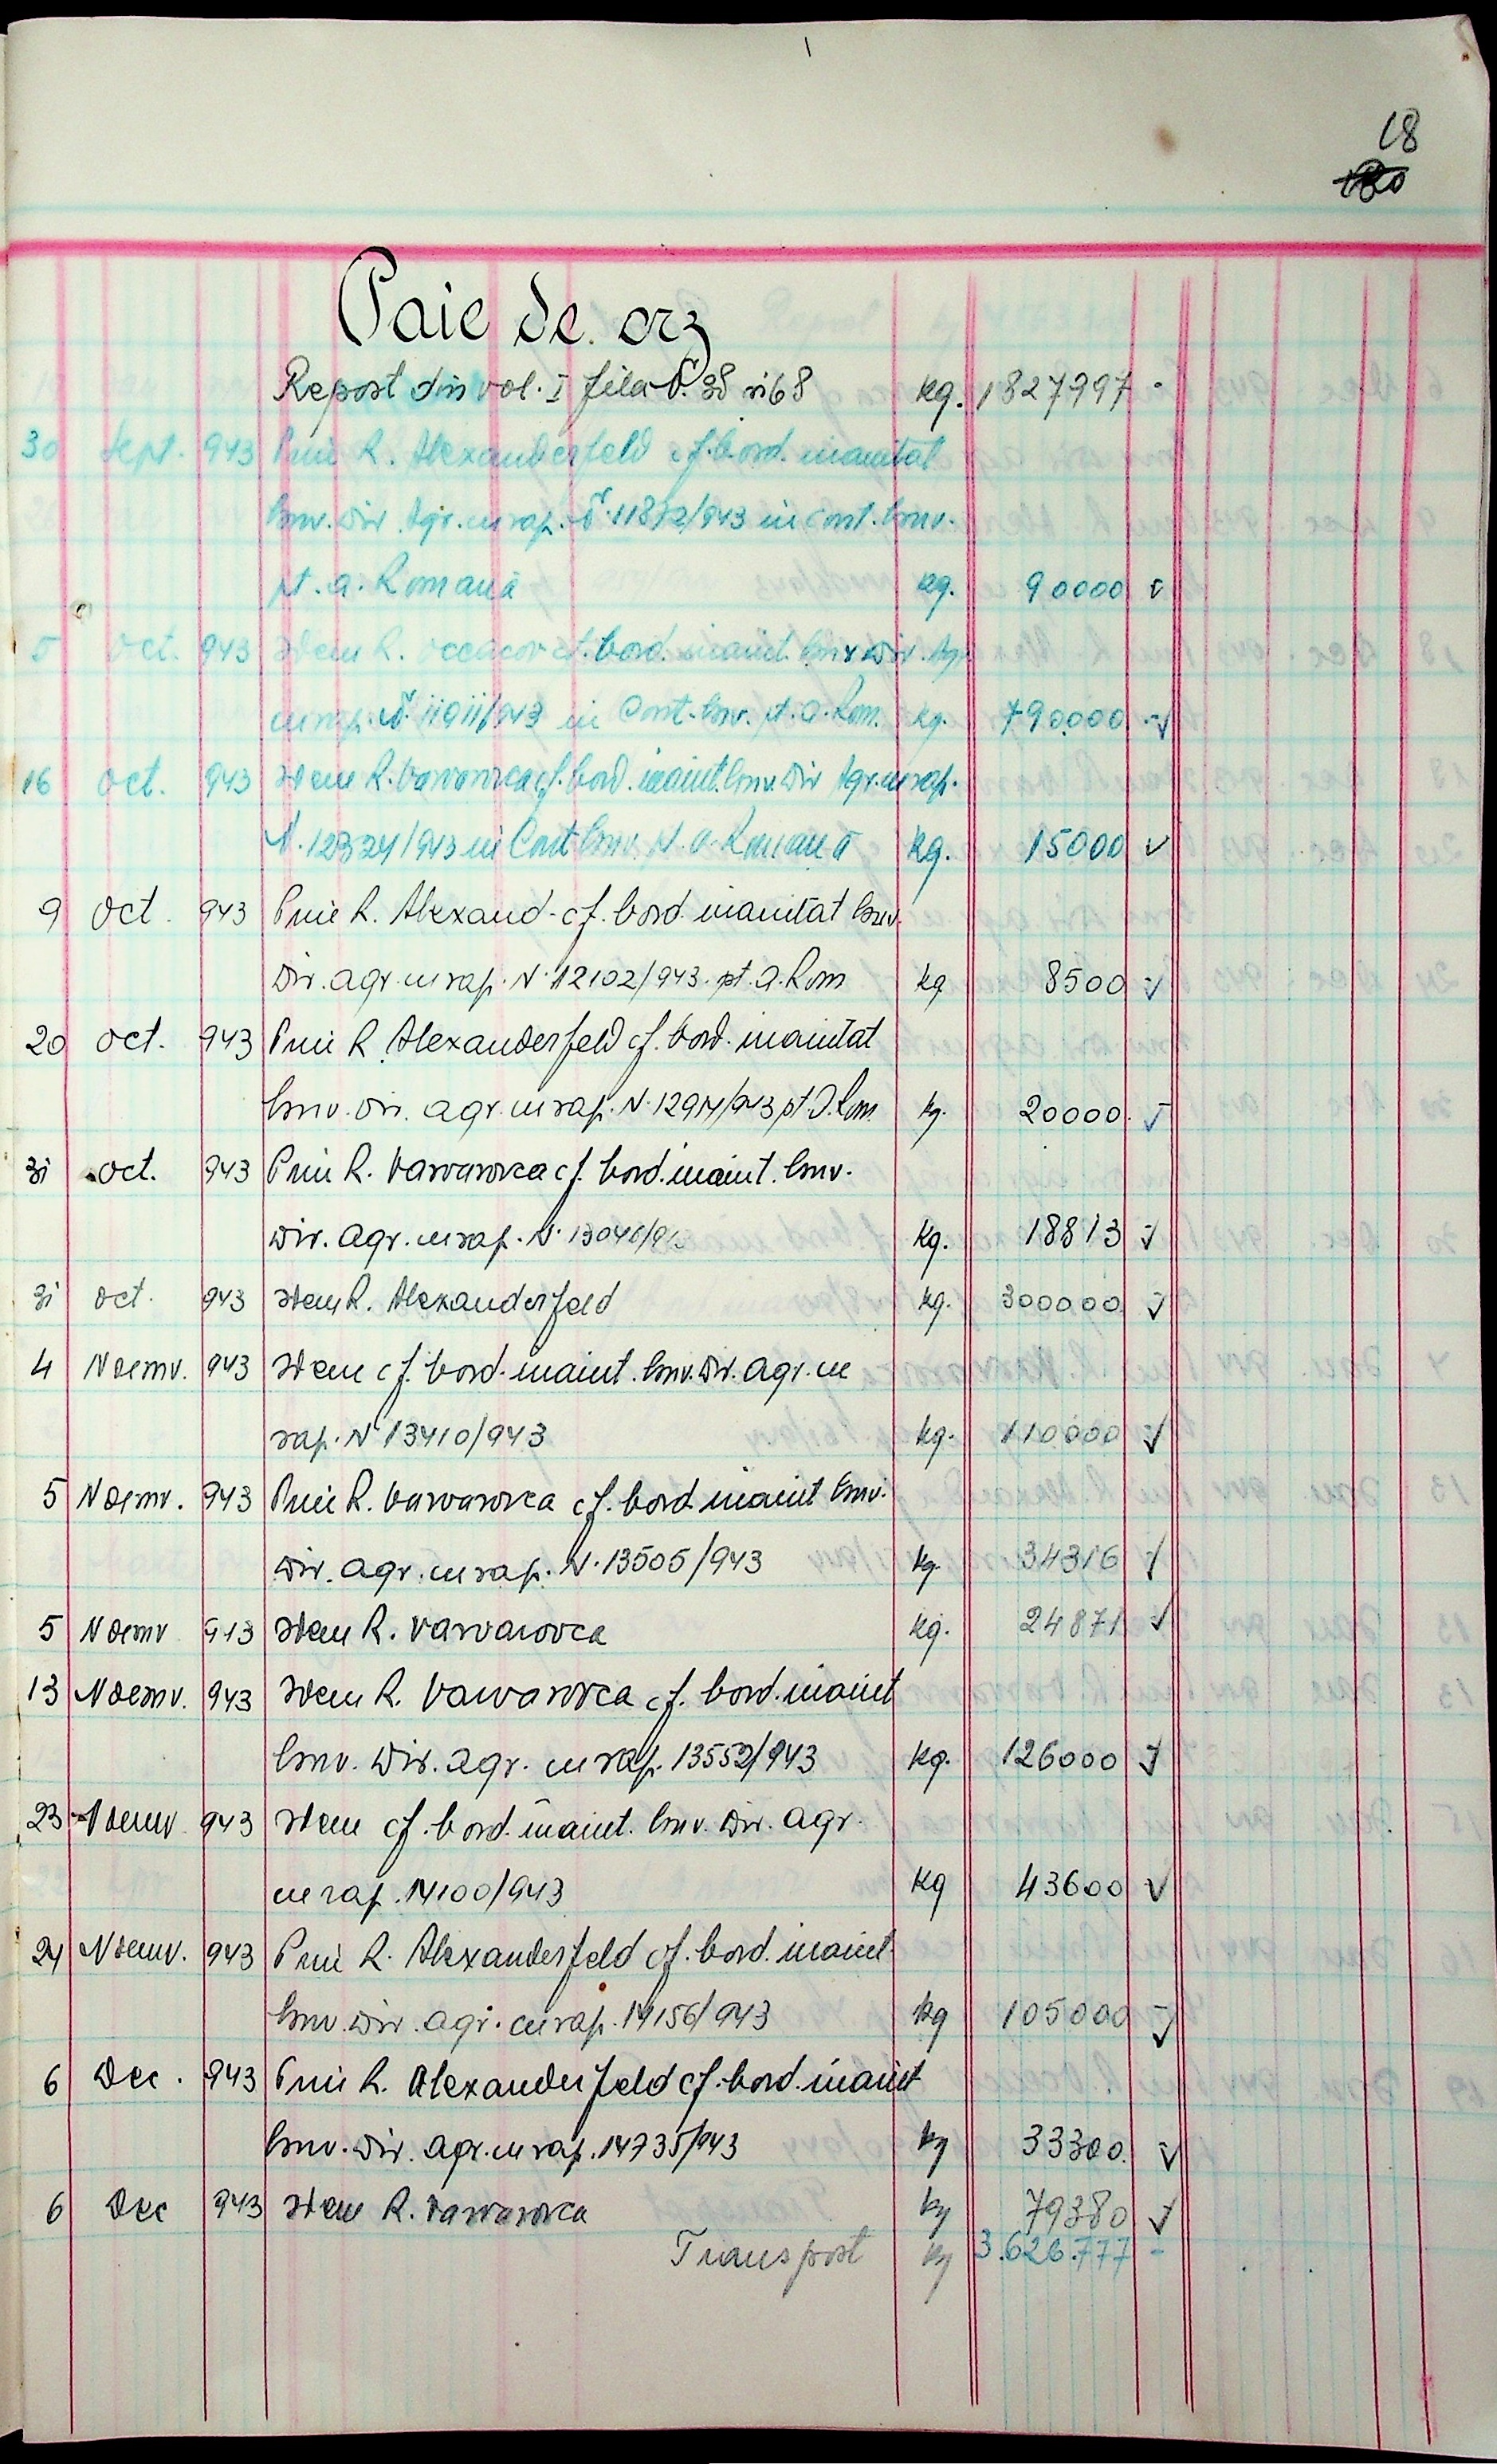 18
Paie de orz
Report din vol. I fila № 38 si 68 kg. 1827997 -
30 Sept. 943 Prin R. Alexanderfeld cf. bord. inaintat
Insv. Dir Agr. cu rap. № 11872/943 in cont. Insv.
pt. a. Romană kg. 90000 v
5 Oct. 943 Idem R. Oceacov cf. bord. inaint. Insv Dir. Agr
cu rap. № 11911/943 in Cont. Insv. pt. a. Rom. kg. 790.000 - v
16 Oct. 943 Idem R. Varvarovca cf. bord. inaint. Insv. Dir Agr. cu rap.
N. 12334/943 in Cont Insv. pt. a. Romană kg. 15000 v
9 Oct. 943 Prin R. Alexand. cf. bord. inaintat Insv.
Dir. agr. cu rap. N. 12102/943. pt. a. Rom kg 8500 v
20 Oct. 943 Prin R. Alexanderfeld cf. bord. inaintat
Insv. Dir. agr. cu rap. N. 12914/943 pt A. Rom. kg. 20000. v
31 Oct. 943 Prin R. Varvarovca cf. bord. inaint. Insv.
Dir. Agr. cu rap. N. kg. 18813 v
31 Oct. 943 Idem R. Alexanderfeld kg. 300000. v
4 Noemv. 943 Idem cf. bord. inaint. Insv. Dir. agr. cu
rap. N 13410/943 kg. 110000 v
5 Noemv. 943 Prin R. Varvarovca cf. bord. inaint Insv.
Dir. agr. cu rap. N. 13505/943 kg. 34316 v
5 Noemv 943 Idem R. Varvarovca kg. 24871 v
13 Noemv. 943 Idem R. Varvarovca cf. bord. inaint
Insv. Dir. agr. cu rap. 13552/943 kg. 126000 v
23 Noemv 943 Idem cf. bord. inaint. Insv. Dir. agr.
cu rap. 14100/943 kg 43600 v
24 Noemv. 943 Prin R. Alexanderfeld cf. bord. inaint.
Insv. Dir. agr. cu rap. 14156/943 kg 105000 v
6 Dec. 943 Prin R. Alexanderfeld cf. bord. inaint
Insv. Dir. agr. cu rap. 14735/943 kg 33300. v
6 Dec 943 Idem R. Varvarovca kg 79380 v
Transport kg 3.626.777 -